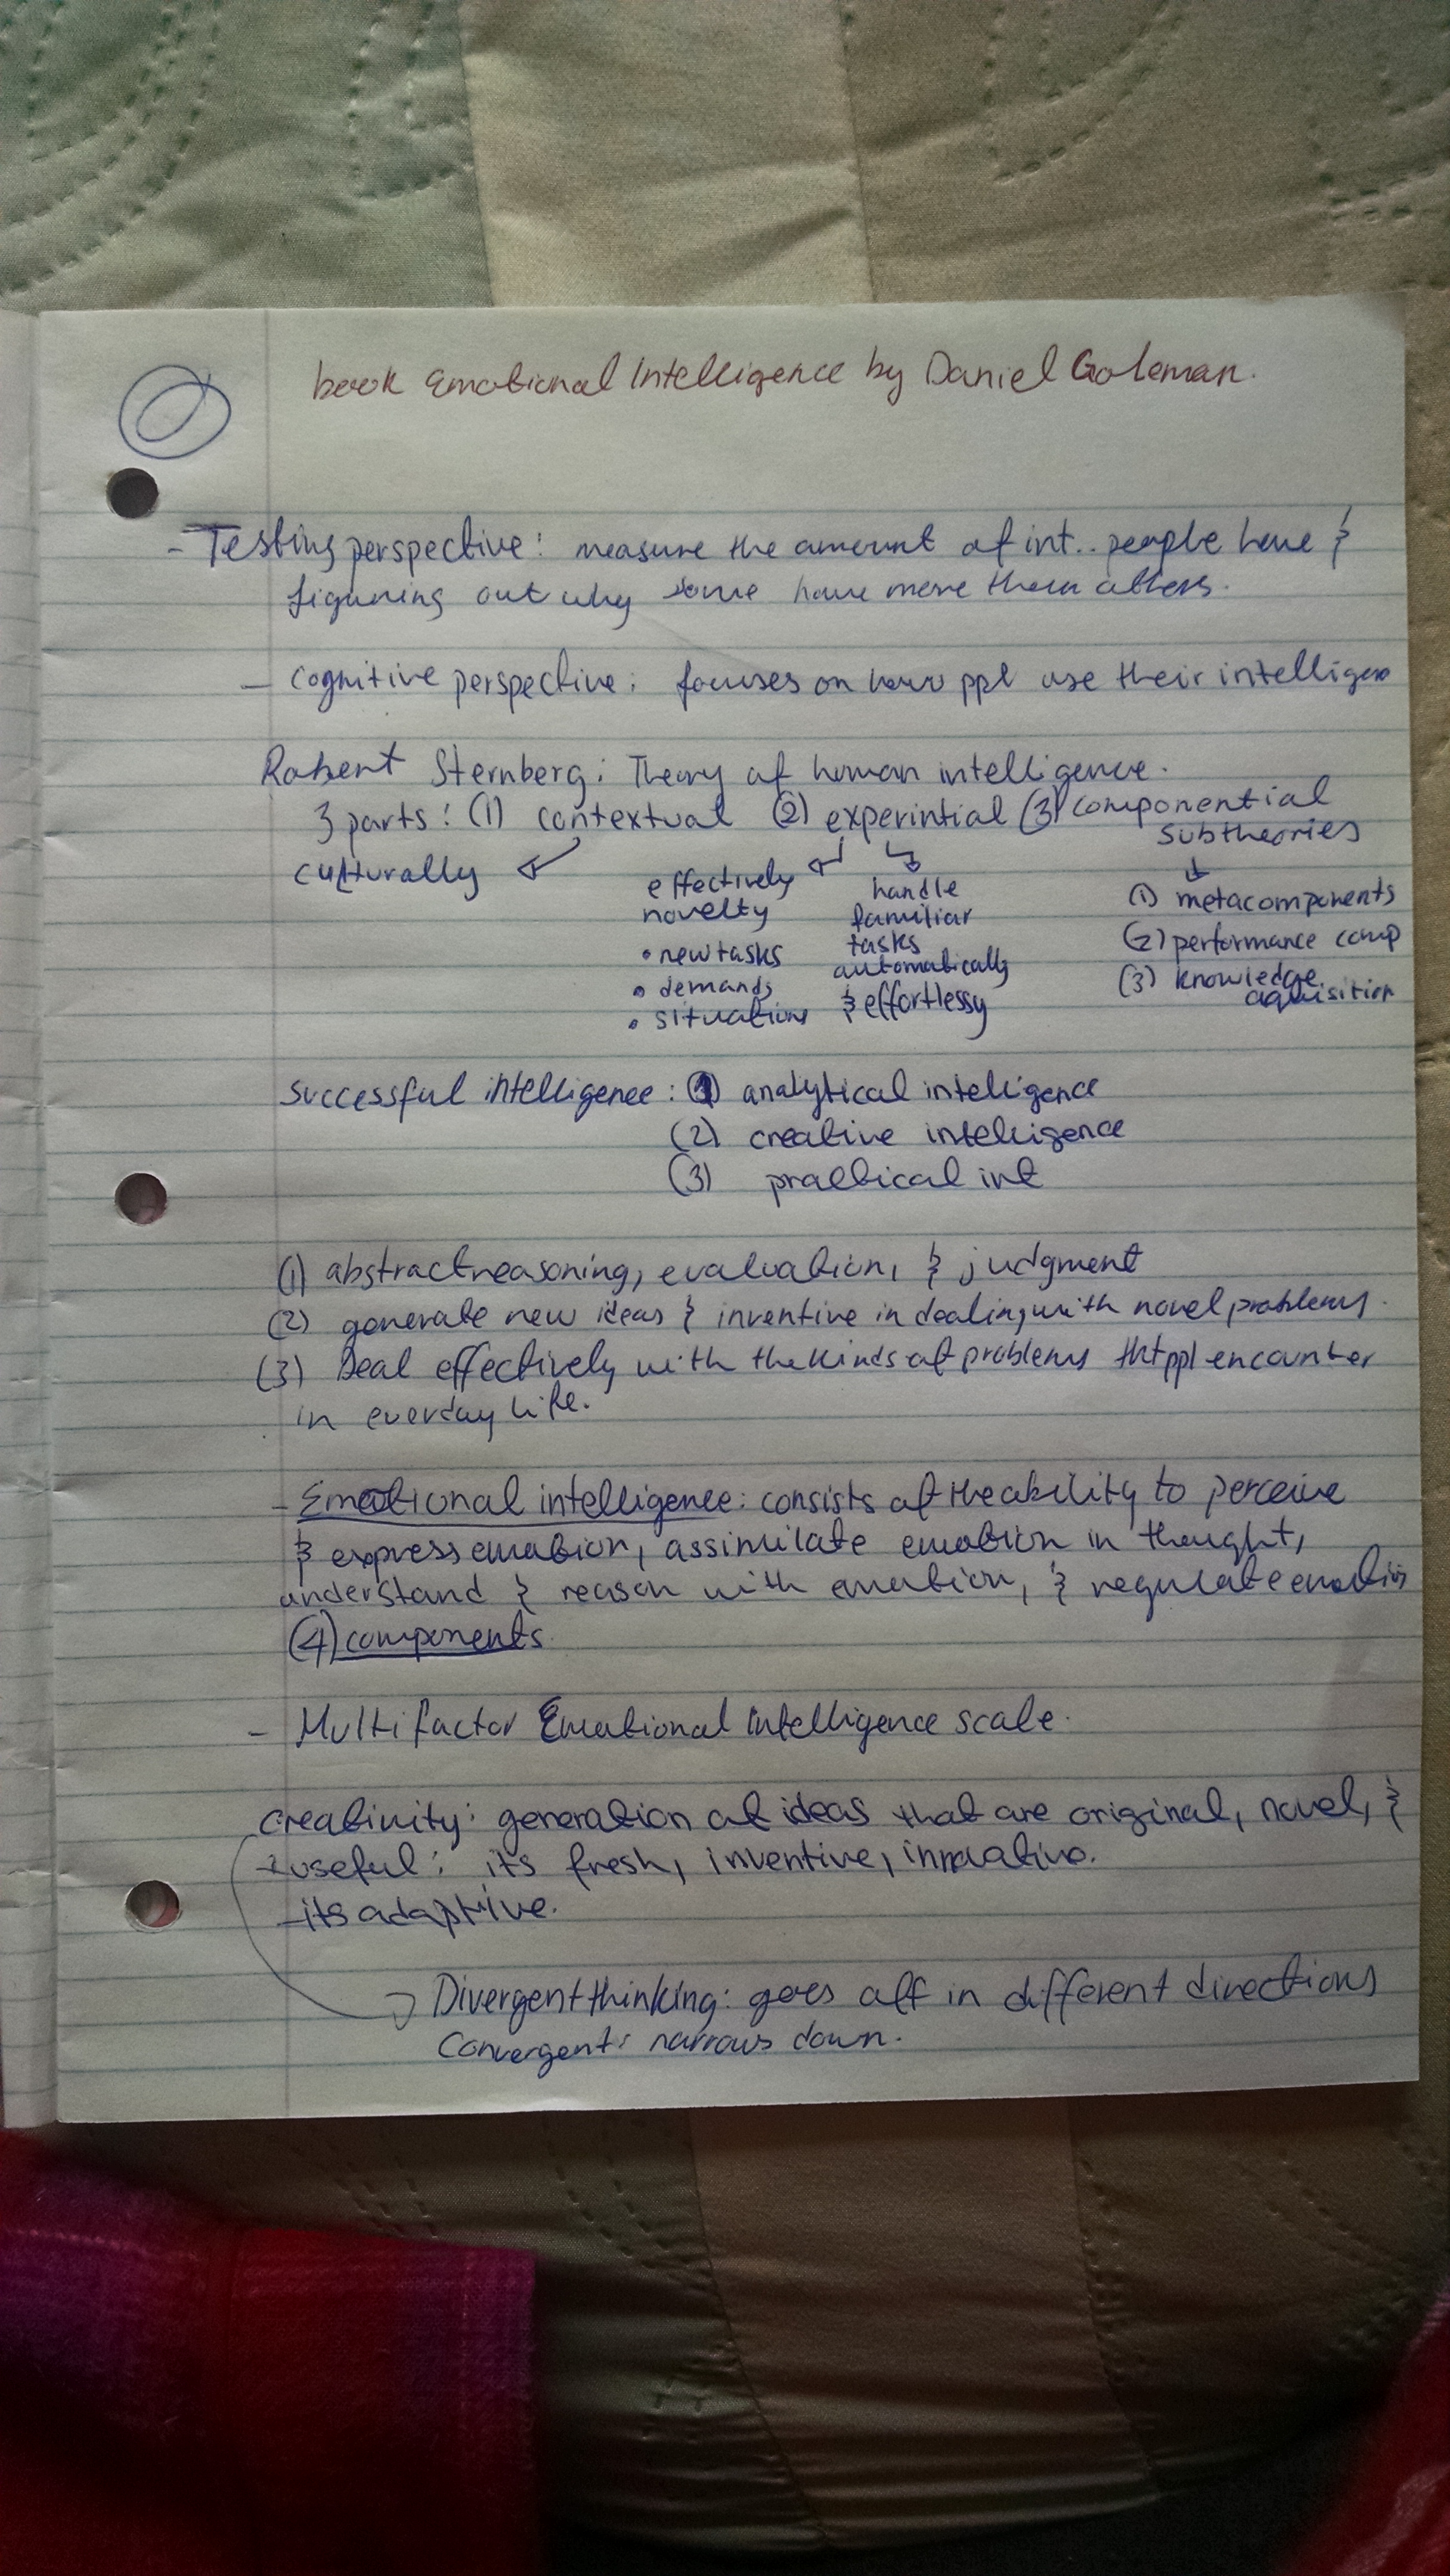 book Emotional Intelligence by Daniel Goleman.
- Testing perspective: measure the amount of int.. people have &
figuring out why some have more than others.
- cognitive perspective: focuses on how ppl use their intelligence
Robert Sternberg: Theory of human intelligence.
3 parts: (1) contextual (2) experintial (3) componential
subtheories
culturally
effectively novelty
• new tasks
• demands
• situations
handle
familiar
tasks
automatically
& effortlessy
(1) metacomponents
(2) performance comp
(3) knowledge
aquisition
successful intelligence: (1) analytical intelligence
(2) creative intelligence
(3) practical int
(1) abstract reasoning, evaluation, & judgment
(2) generate new ideas & inventive in dealing with novel problems.
(3) Deal effectively with the kinds of problems tht ppl encounter
in everday life.
- Emotional intelligence: consists of the ability to perceive
& express emotion, assimilate emotion in thought,
understand & reason with emotion, & regulate emotion
(4) components
- Multifactor Emotional Intelligence scale.
creativity: generation of ideas that are original, novel, &
useful: its fresh, inventive, innovative.
- its adaptive.
Divergent thinking: goes off in different directions
Convergent: narrows down.